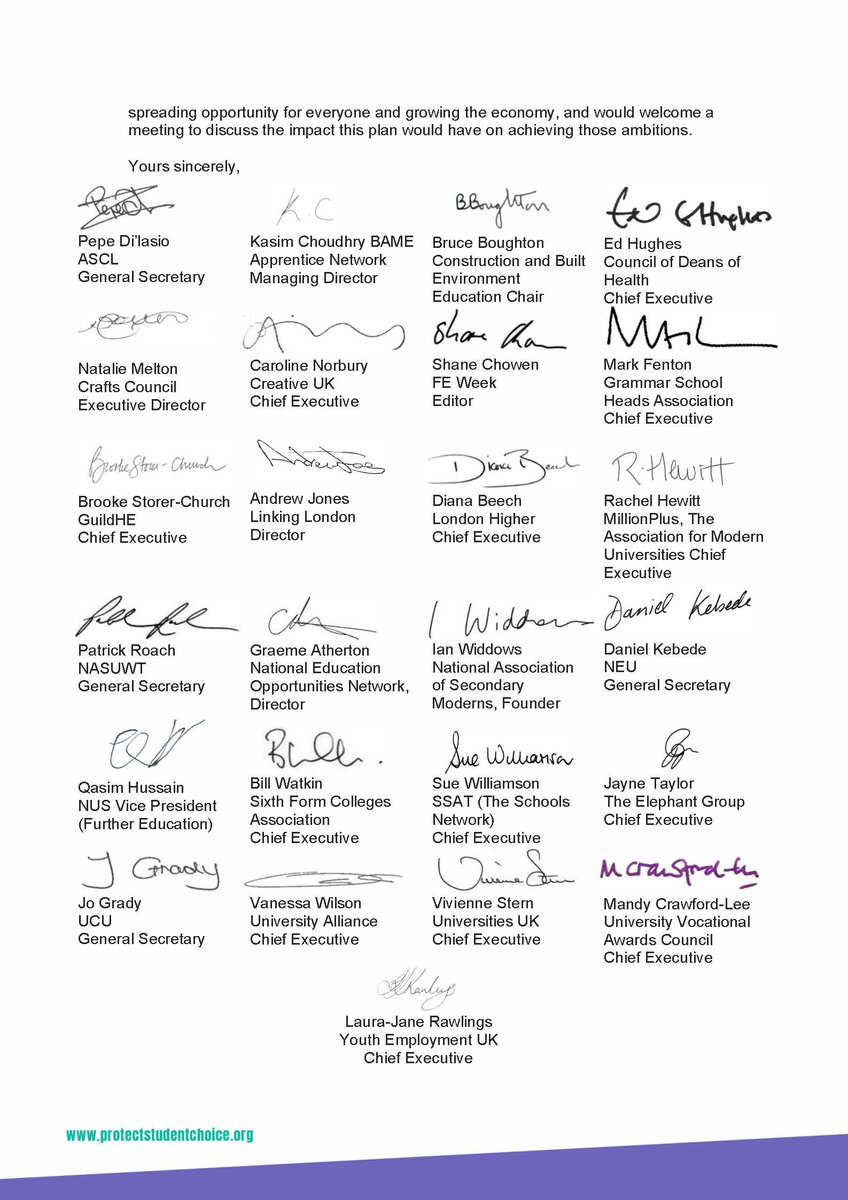 spreading opportunity for everyone and growing the economy, and would welcome a
meeting to discuss the impact this plan would have on achieving those ambitions.
Yours sincerely,
Pepe Di'Iasio
ASCL
General Secretary
K.C
Kasim Choudhry BAME
Apprentice Network
Managing Director
B Boughton
Bruce Boughton
Construction and Built
Environment
Education Chair
Ed Hughes
Ed Hughes
Council of Deans of
Health
Chief Executive
Natalie Melton
Crafts Council
Executive Director
Caroline Norbury
Creative UK
Chief Executive
Shane Chowen
FE Week
Editor
Mark Fenton
Grammar School
Heads Association
Chief Executive
Brooke Storer-Church
Brooke Storer-Church
GuildHE
Chief Executive
Andrew Jones
Linking London
Director
Diana Beech
Diana Beech
London Higher
Chief Executive
R. Hewitt
Rachel Hewitt
MillionPlus, The
Association for Modern
Universities Chief
Executive
Patrick Roach
NASUWT
General Secretary
Graeme Atherton
National Education
Opportunities Network,
Director
I Widdows
Ian Widdows
National Association
of Secondary
Moderns, Founder
Daniel Kebede
Daniel Kebede
NEU
General Secretary
Qasim Hussain
NUS Vice President
(Further Education)
Bill Watkin
Sixth Form Colleges
Association
Chief Executive
Sue Williamson
Sue Williamson
SSAT (The Schools
Network)
Chief Executive
Jayne Taylor
The Elephant Group
Chief Executive
J Grady
Jo Grady
UCU
General Secretary
Vanessa Wilson
University Alliance
Chief Executive
Vivienne Stern
Vivienne Stern
Universities UK
Chief Executive
M Crawford-Lee
Mandy Crawford-Lee
University Vocational
Awards Council
Chief Executive
Laura-Jane Rawlings
Youth Employment UK
Chief Executive
www.protectstudentchoice.org